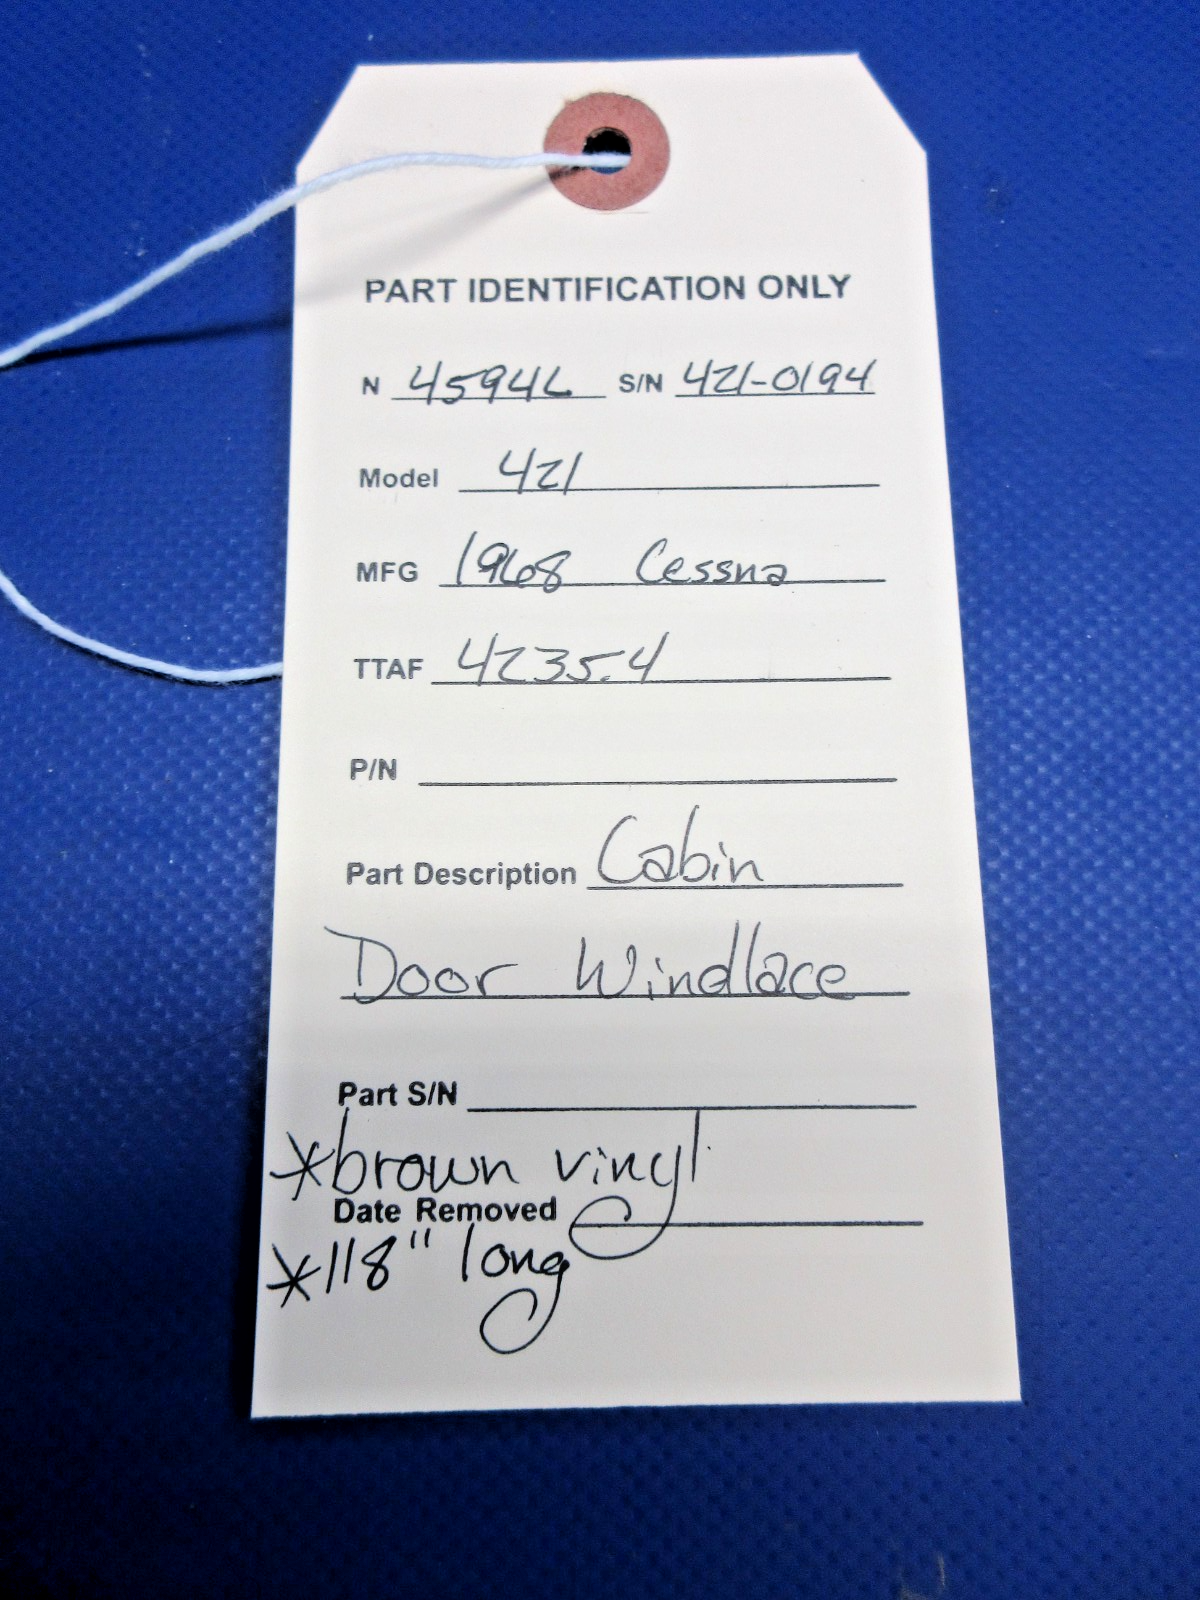 PART IDENTIFICATION ONLY
N 4594L S/N 421-0194
Model 421
MFG 1968 Cessna
TTAF 4235.4
P/N
Part Description Cabin
Door Windlace
Part S/N
*brown vinyl
Date Removed
*118" long